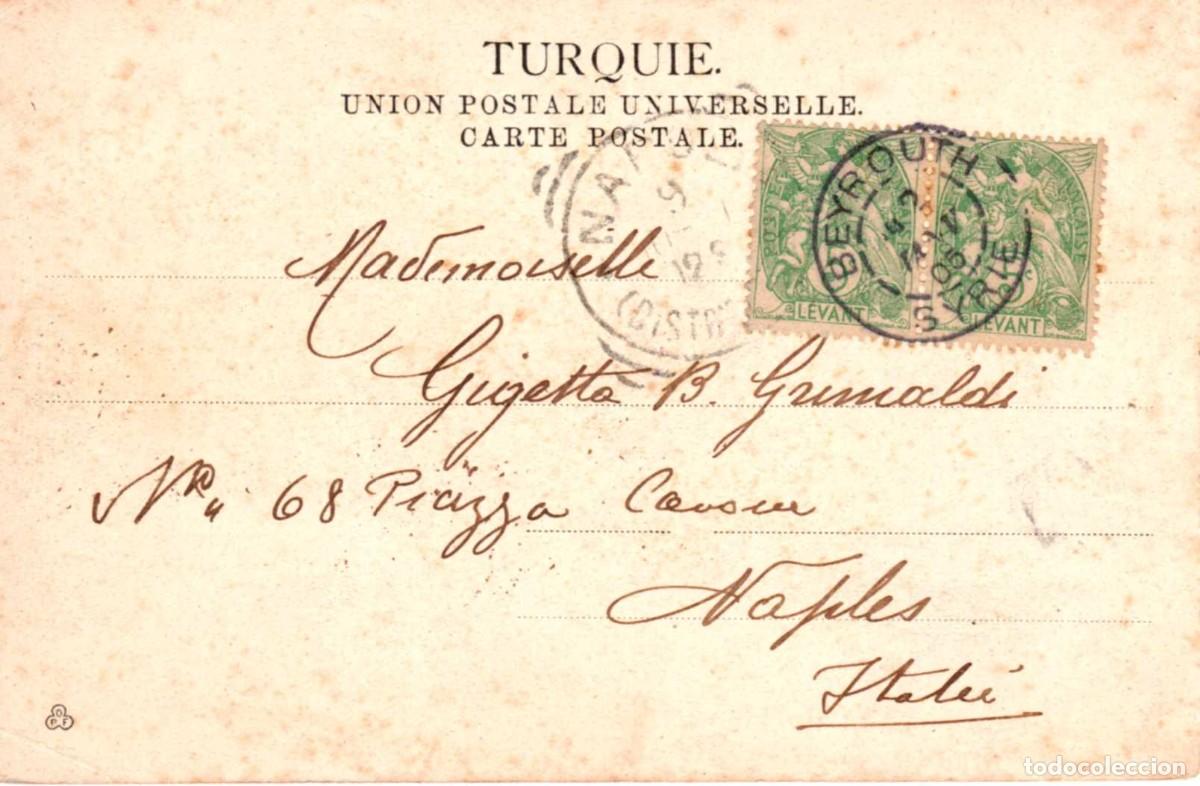 TURQUIE.
UNION POSTALE UNIVERSELLE.
CARTE POSTALE.
BEYROUTH
SYRIE
LEVANT
LEVANT
Mademoiselle
Gigetta B. Grimaldi
68 Piazza Cavour
Naples
Italie
todocoleccion